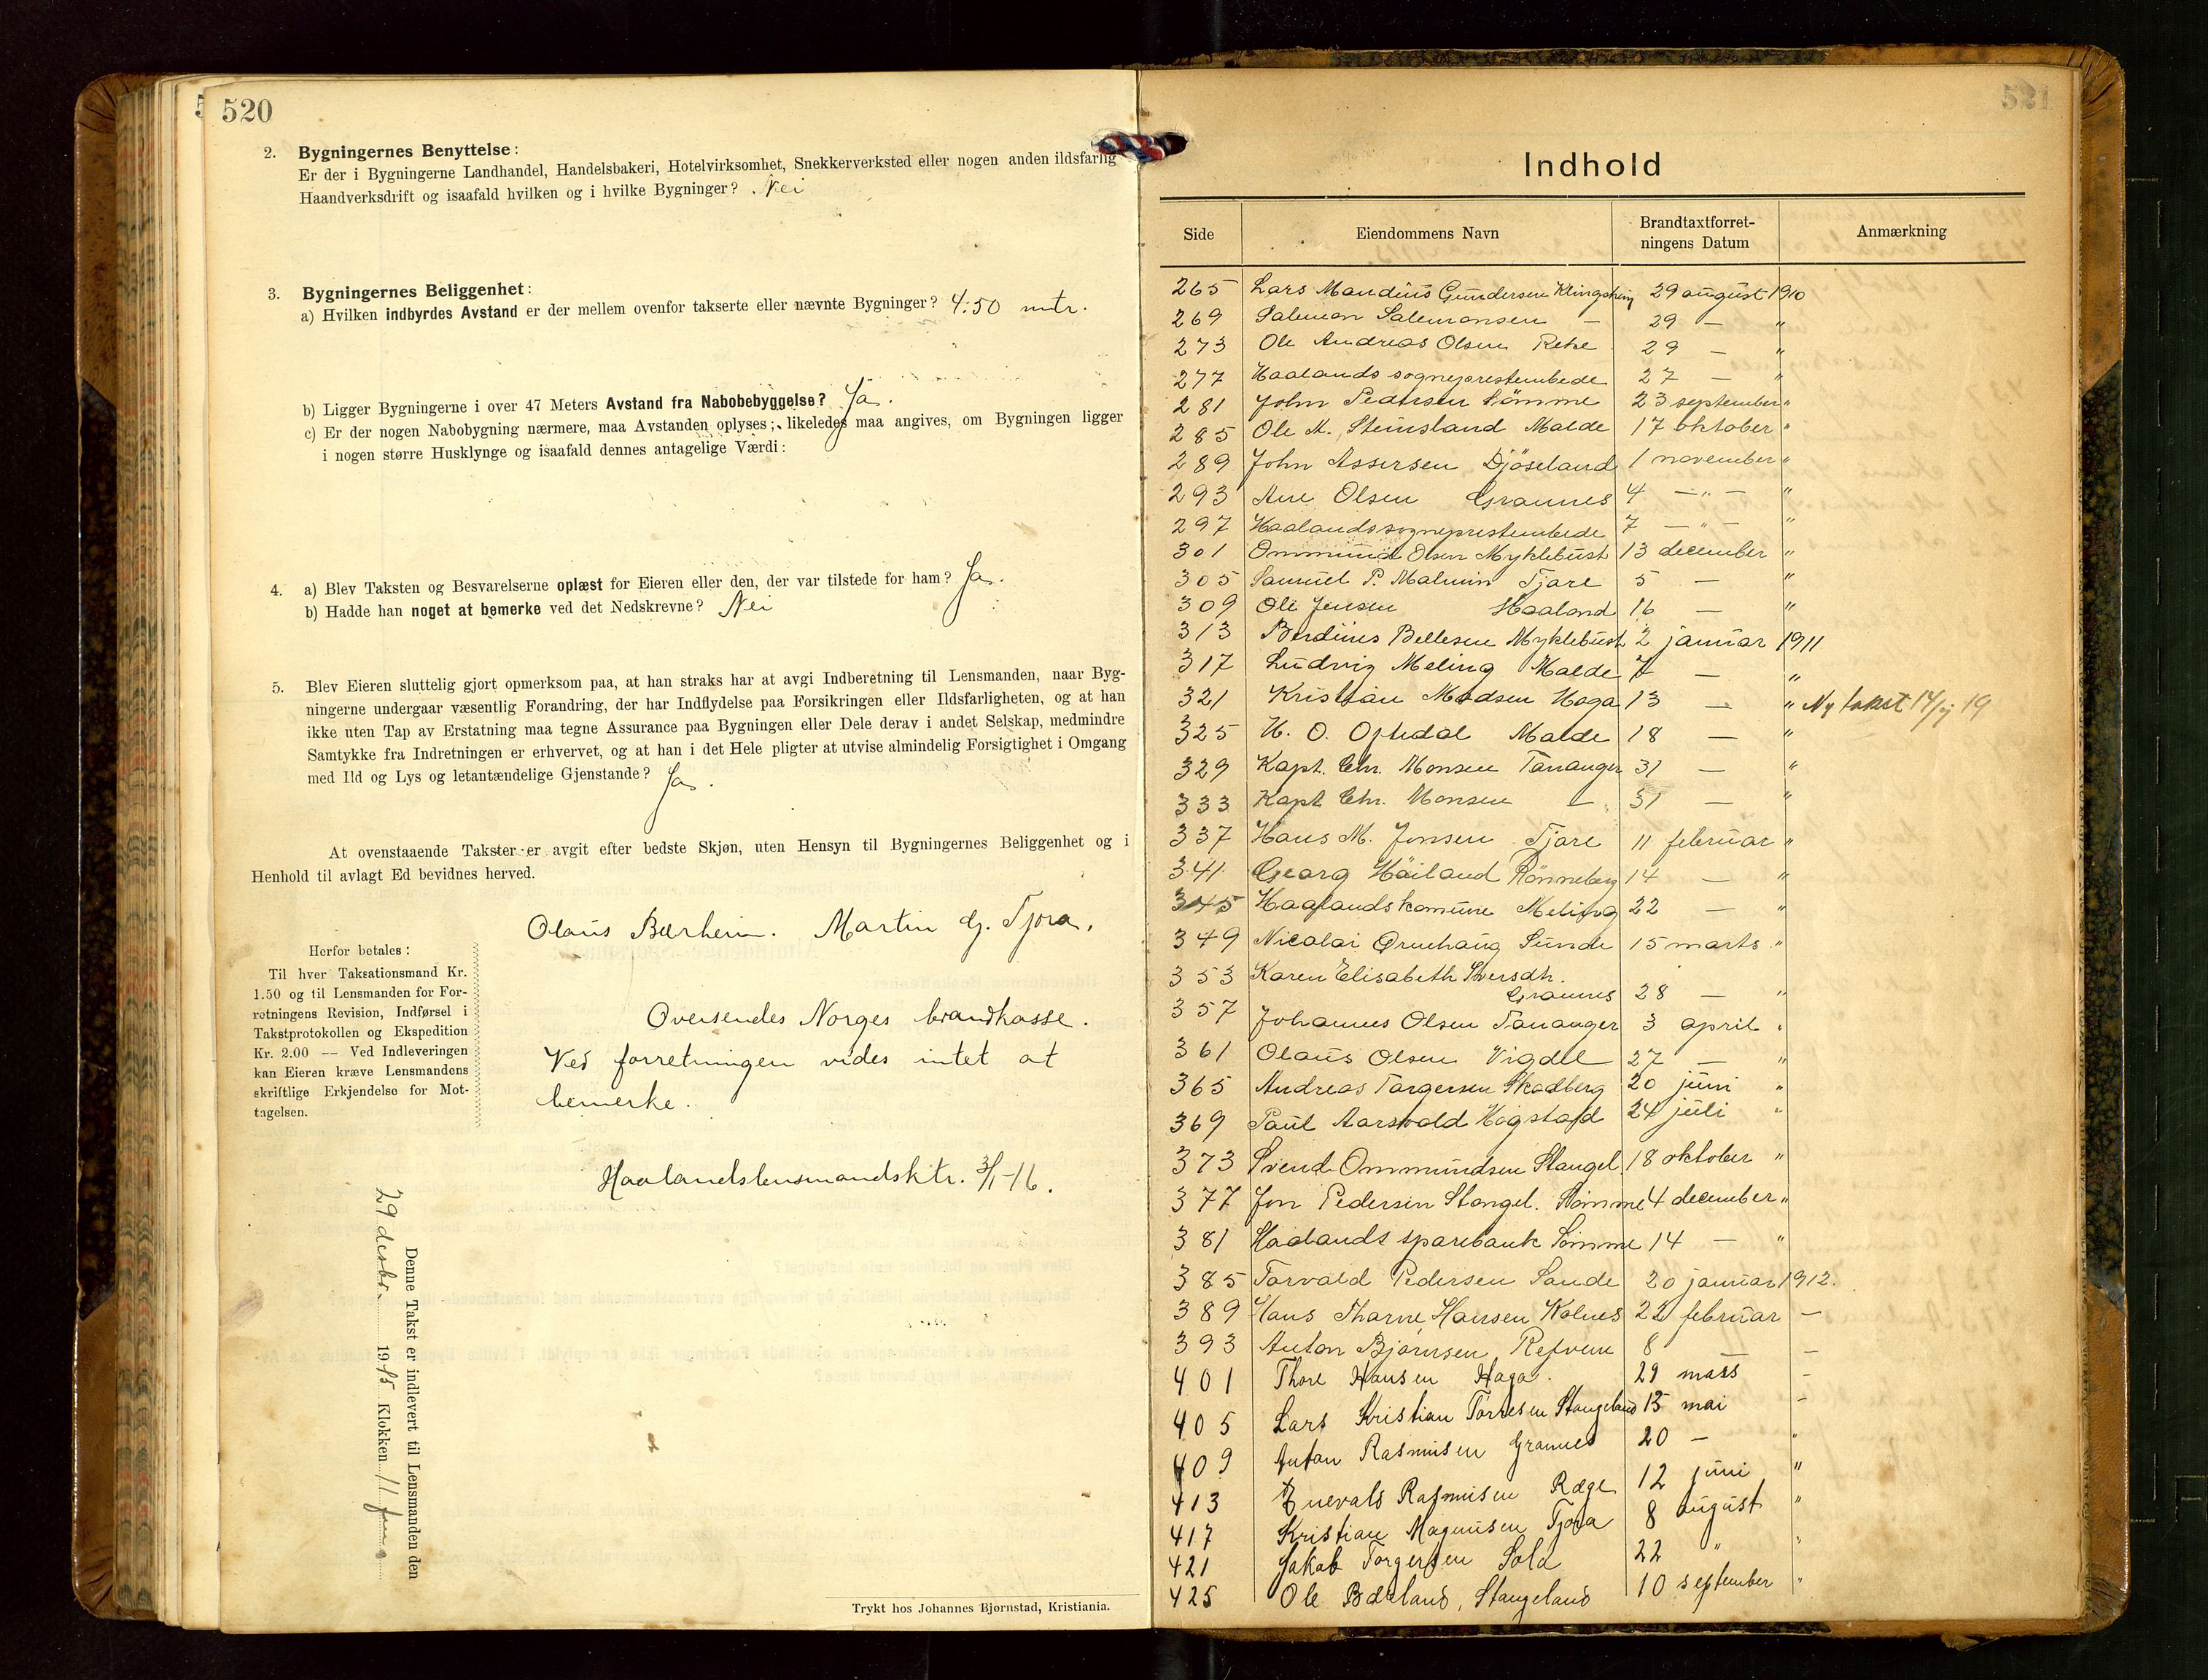 520
2. Bygningernes Benyttelse:
Er der i Bygningerne Landhandel, Handelsbakeri, Hotelvirksomhet, Snekkerverksted eller nogen anden ildsfarlig
Haandverksdrift og isaafald hvilken og i hvilke Bygninger? Nei
3. Bygningernes Beliggenhet:
a) Hvilken indbyrdes Avstand er der mellem ovenfor takserte eller nævnte Bygninger? 4.50 mtr.
b) Ligger Bygningerne i over 47 Meters Avstand fra Nabobebyggelse? Ja.
c) Er der nogen Nabobygning nærmere, maa Avstanden oplyses; likeledes maa angives, om Bygningen ligger
i nogen større Husklynge og isaafald dennes antagelige Værdi:
4. a) Blev Taksten og Besvarelserne oplæst for Eieren eller den, der var tilstede for ham? Ja.
b) Hadde han noget at bemerke ved det Nedskrevne? Nei
5. Blev Eieren sluttelig gjort opmerksom paa, at han straks har at avgi Indberetning til Lensmanden, naar Byg-
ningerne undergaar væsentlig Forandring, der har Indflydelse paa Forsikringen eller Ildsfarligheten, og at han
ikke uten Tap av Erstatning maa tegne Assurance paa Bygningen eller Dele derav i andet Selskap, medmindre
Samtykke fra Indretningen er erhvervet, og at han i det Hele pligter at utvise almindelig Forsigtighet i Omgang
med Ild og Lys og letantændelige Gjenstande? Ja.
At ovenstaaende Takster er avgit efter bedste Skjøn, uten Hensyn til Bygningernes Beliggenhet og i
Henhold til avlagt Ed bevidnes herved.
Olaus Bærheim. Martin G. Tjora.
Herfor betales:
Til hver Taksationsmand Kr.
1.50 og til Lensmanden for For-
retningens Revision, Indførsel i
Takstprotokollen og Ekspedition
Kr. 2.00 — Ved Indleveringen
kan Eieren kræve Lensmandens
skriftlige Erkjendelse for Mot-
tagelsen.
Oversendes Norges brandkasse.
Ved forretningen vides intet at
bemerke.
Haalandslensmandsktr. 3/1-16.
Denne Takst er indlevert til Lensmanden den
29 desbr. 1915 Klokken 11 fm
Trykt hos Johannes Bjørnstad, Kristiania.
521
Indhold
Side Eiendommens Navn Brandtaxtforret-
ningens Datum Anmærkning
265 Lars Mandius Gundersen Klingsheim 29 august 1910
269 Salemon Salemonsen — 29 — "
273 Ole Andreas Olsen Reke 29 — "
277 Haalands sogneprestembede 27 — "
281 John Pedersen Sömme 23 september "
285 Ole M. Steinsland Malde 17 oktober "
289 John Assersen Djöseland 1 november "
293 Ane Olsen Grannes 4 —"— "
297 Haalands sogneprestembede 7 —"— "
301 Ommund Olsen Myklebust 13 december "
305 Samuel P. Malmin Tjare 5 — "
309 Ole Jensen Haaland 16 — "
313 Berdines Bellesen Myklebust 2 januar 1911
317 Ludvig Meling Malde 7 — "
321 Kristian Madsen Haga 13 — " Ny takst 14/7 19
325 H. O. Opstedal Malde 18 — "
329 Kapt. Chr. Monsen Tananger 31 — "
333 Kapt Chr. Monsen — 31 — "
337 Hans M. Jonsen Tjare 11 februar "
341 Georg Häiland Rönneberg 14 — "
345 Haalands komune Meling 22 — "
349 Nicolai Ørnehaug Sunde 15 marts "
353 Karen Elisabeth Iversdh.
Grannes 28 — "
357 Johannes Olsen Tananger 3 april "
361 Olaus Olsen Vigdel 27 — "
365 Andreas Torgersen Skadberg 20 juni "
369 Paul Aarsvold Hogstad 24 juli "
373 Svend Ommundsen Stangel. 18 oktober "
377 Jon Pedersen Stangel. Sömme 4 december "
381 Haalands sparebank Sömme 14 — "
385 Torvald Pedersen Sande 20 januar 1912.
389 Hans Tharne Hansen Kolnes 22 februar —
393 Anton Bjørnsen, Refvem 8 —
401 Thore Hansen Haga. 29 mars —
405 Lars Kristian Torresen Stangeland 15 mai —
409 Anton Rasmussen Grannes 20 — "
413 Enevald Rasmussen Ræge 12 juni "
417 Kristian Magnusen Tjora 8 august "
421 Jakob Torgersen Sola 22 " "
425 Ole Bærland, Stangeland 10 september "